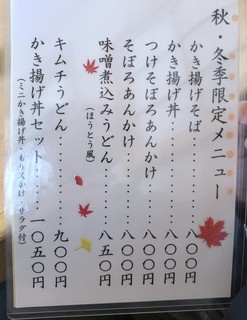 秋・冬季限定メニュー
かき揚げそば………八〇〇円
かき揚げあんかけ………八〇〇円
つけそぼろあんかけ………八〇〇円
そぼろあんかけ………八〇〇円
味噌煮込みうどん………八五〇円
(ほうとう風)
キムチうどん………九〇〇円
かき揚げ丼セット………一〇五〇円
(ミニかき揚げ丼・もりorかけ・サラダ付)